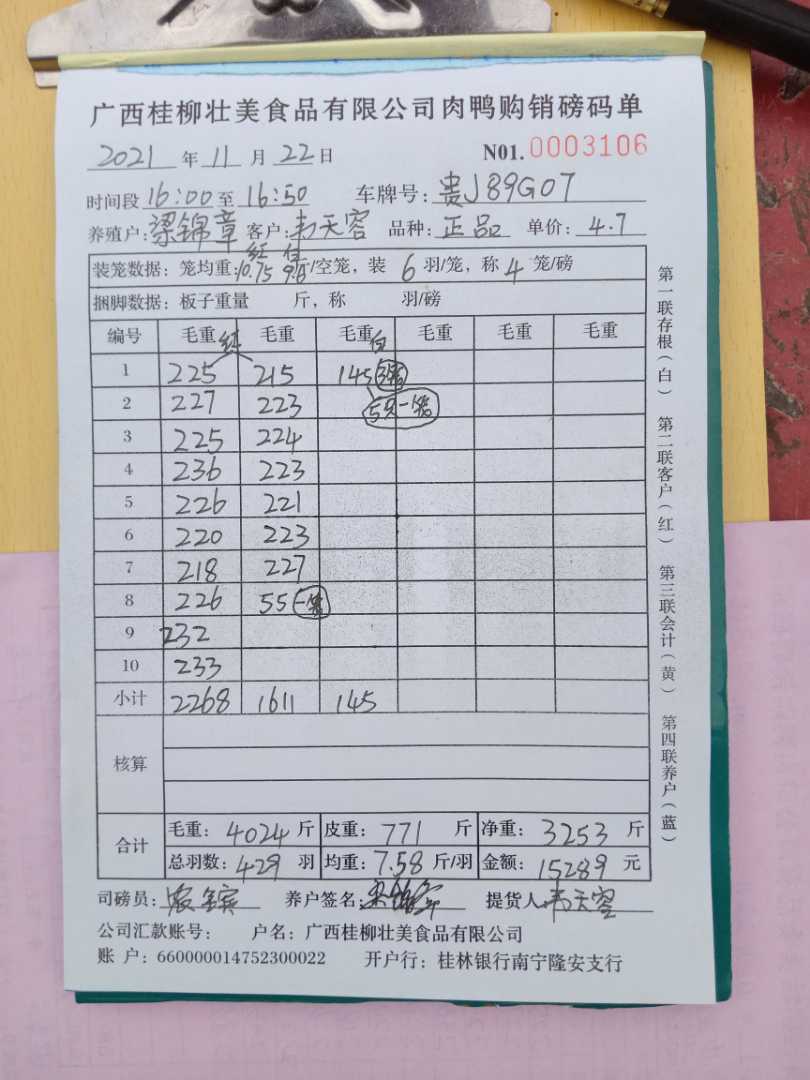 广西桂柳壮美食品有限公司肉鸭购销磅码单
2021 年 11 月 22 日 N01.0003106
时间段 16:00 至 16:50 车牌号: 贵J89G07
养殖户: 梁锦章 客户: 韦天容 品种: 正品 单价: 4.7
红 白
装笼数据: 笼均重: 10.75 /空笼, 装 6 羽/笼, 称 4 笼/磅
捆脚数据: 板子重量 斤, 称 羽/磅
编号 毛重 毛重 毛重 毛重 毛重 毛重
红 白
1 225 215 145 3笼
2 227 223 5只一笼
3 225 224
4 236 223
5 226 221
6 220 223
7 218 227
8 226 55 一笼
9 232
10 233
小计 2268 1611 145
核算
合计 毛重: 4024 斤 皮重: 771 斤 净重: 3253 斤
总羽数: 429 羽 均重: 7.58 斤/羽 金额: 15289 元
司磅员: 养户签名: 提货人: 韦天容
公司汇款账号: 户名: 广西桂柳壮美食品有限公司
账 户: 660000014752300022 开户行: 桂林银行南宁隆安支行
第一联存根(白) 第二联客户(红) 第三联会计(黄) 第四联养户(蓝)